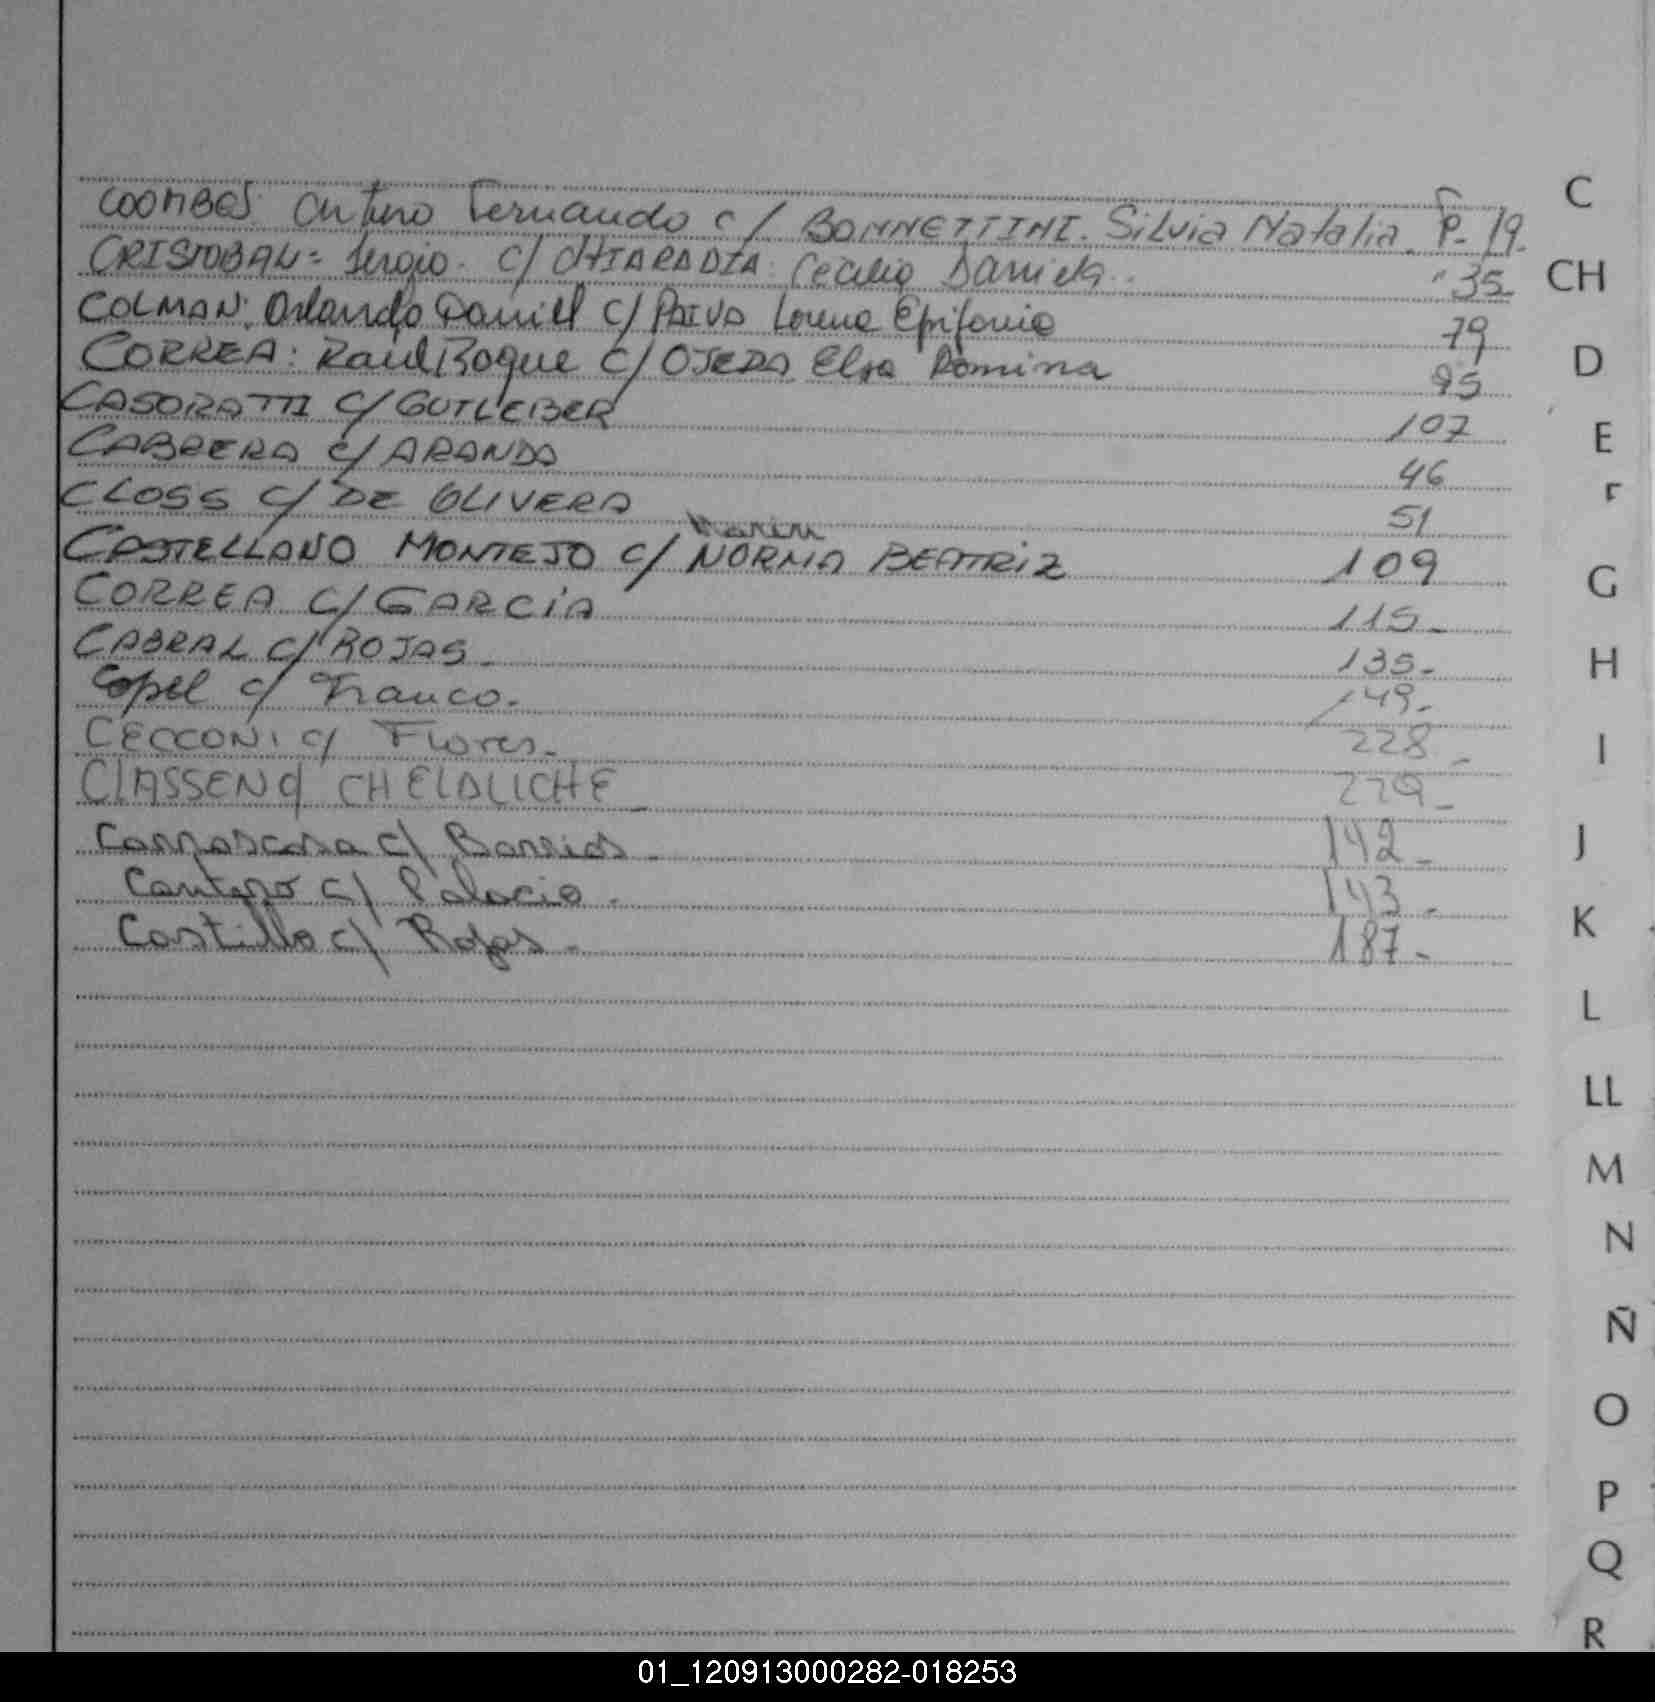 COOMBES: Arturo Fernando c/ BONNETTINI. Silvia Natalia. P. 19.
CRISTOBAL= Sergio. c/ CHIARADIA: Cecilia Daniela. " 35
COLMAN: Orlando Daniel c/ PAIVA Lorena Epifania 79
CORREA: Raul Roque c/ OJEDA Elsa Romina 95
CASORATTI c/ GUTLEBER 107
CABRERA c/ ARANDA 46
CLOSS c/ DE OLIVERA 51
Karin
CASTELLANO MONTEJO c/ NORMA BEATRIZ 109
CORREA c/ GARCÍA 115-
CABRAL c/ ROJAS. 135-
Copel c/ Franco. 149-
CECCONI c/ Flores. 228-
ClASSEN c/ CHELALICHE - 229-
Carrascosa c/ Barrios - 142-
Cantero c/ Palacio. 143-
Castillo c/ Rojas - 187-
C
CH
D
E
F
G
H
I
J
K
L
LL
M
N
Ñ
O
P
Q
R
01_120913000282-018253